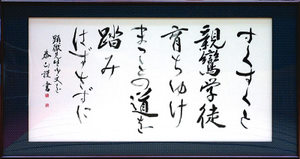 すくすくと
親鸞学徒
育ちゆけ
まことの道を
踏み
はずさずに